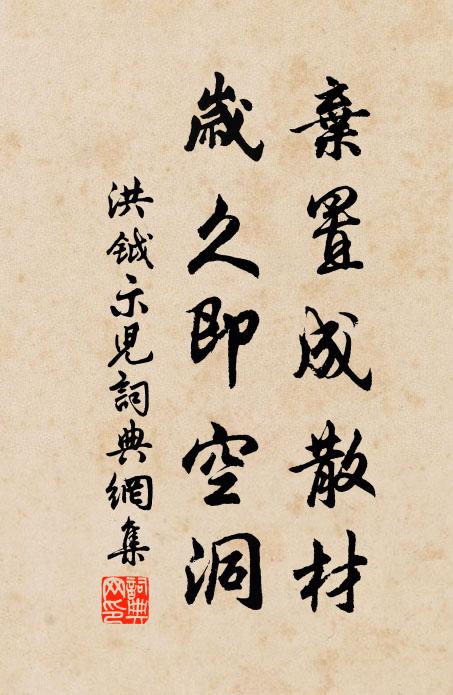 棄置成散材
歲久即空洞
洪鉞示兒詞典網集
詞典網印